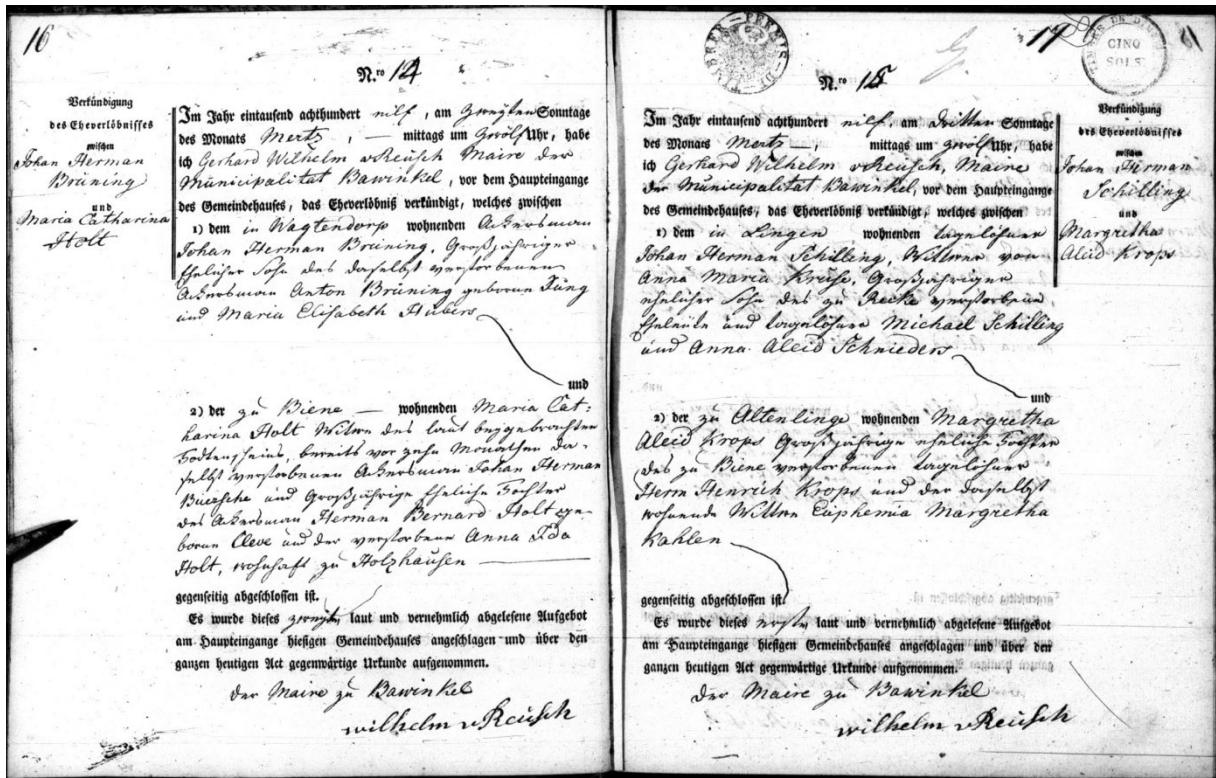 16
N.ro 14
Verkündigung
des Eheverlöbnisses
zwischen
Johan Herman
Brüning
und
Maria Catharina
Holt
Im Jahr eintausend achthundert eilf, am Zweyten Sonntage
des Monats Mertz, — mittags um zwölf Uhr, habe
ich Gerhard Wilhelm vReusch Maire der
Municipalitat Bawinkel, vor dem Haupteingange
des Gemeindehauses, das Eheverlöbniß verkündigt, welches zwischen
1) dem in Wagtendorp wohnenden Akersman
Johan Herman Brüning, Großjähriger
Ehelicher Sohn des daselbst verstorbenen
Akersman Anton Brüning geborne Jüng
und Maria Elisabeth Hubers
und
2) der zu Biene — wohnenden Maria Cat-
harina Holt Witwe des laut beygebrachten
Todtenscheins, bereits vor zehn Monathen da-
selbst verstorbenen Akersman Johan Herman
und Großjährige Eheliche Tochter
des Akersman Herman Bernard Holt ge-
borne Cleve und der verstorbene Anna Ida
Holt, wohnhaft zu Holzhausen
gegenseitig abgeschlossen ist.
Es wurde dieses zweyte, laut und vernehmlich abgelesene Aufgebot
am Haupteingange hiesigen Gemeindehauses angeschlagen und über den
ganzen heutigen Act gegenwärtige Urkunde aufgenommen.
Der Maire zu Bawinkel
wilhelm vReusch
17
CINQ
SOLS
N.ro 15
Verkündigung
des Eheverlöbnisses
zwischen
Johan Herman
Schilling
und
Margretha
Aleid Krops
Im Jahr eintausend achthundert eilf, am dritten Sonntage
des Monats Mertz —, mittags um zwölf Uhr, habe
ich Gerhard Wilhelm vReusch, Maire
der Municipalitat Bawinkel, vor dem Haupteingange
des Gemeindehauses, das Eheverlöbniß verkündigt, welches zwischen
1) dem in Lingen wohnenden tagelöhner
Johan Herman Schilling, Wittwer von
Anna Maria Kruse, Großjähriger
ehelicher Sohn des zu Recke verstorbene,
Eheleute und tagelöhner Michael Schilling
und Anna Aleid Schnieders
und
2) der zu Altenlinge wohnenden Margretha
Aleid Krops Großjährige eheliche Tochter
des zu Biene verstorbenen tagelöhner
Herm Henrich Krops und der daselbst
wohnende Wittwe Euphemia Margretha
Kahlen
gegenseitig abgeschlossen ist.
Es wurde dieses erste, laut und vernehmlich abgelesene Aufgebot
am Haupteingange hiesigen Gemeindehauses angeschlagen und über den
ganzen heutigen Act gegenwärtige Urkunde aufgenommen.
Der Maire zu Bawinkel
wilhelm vReusch